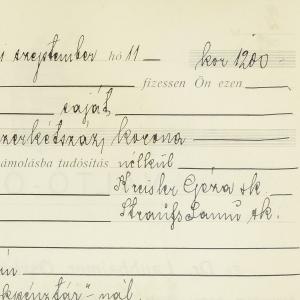 i szeptember hó 11 — kor 1200 —
fizessen Ön ezen
saját
zerkétszáz korona
ámolásba tudósítás nélkül
Kreisler Géza sk.
Straufs Samu sk.
kpénztár"-nál.